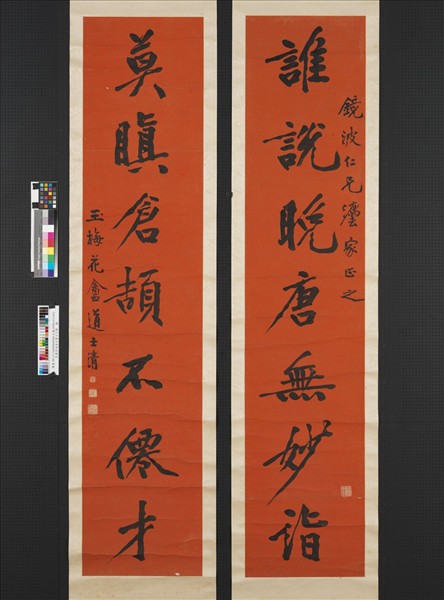 鏡波仁兄灋家正之
誰說晚唐無妙詣
莫瞋倉頡不僊才
玉梅花盦道士清